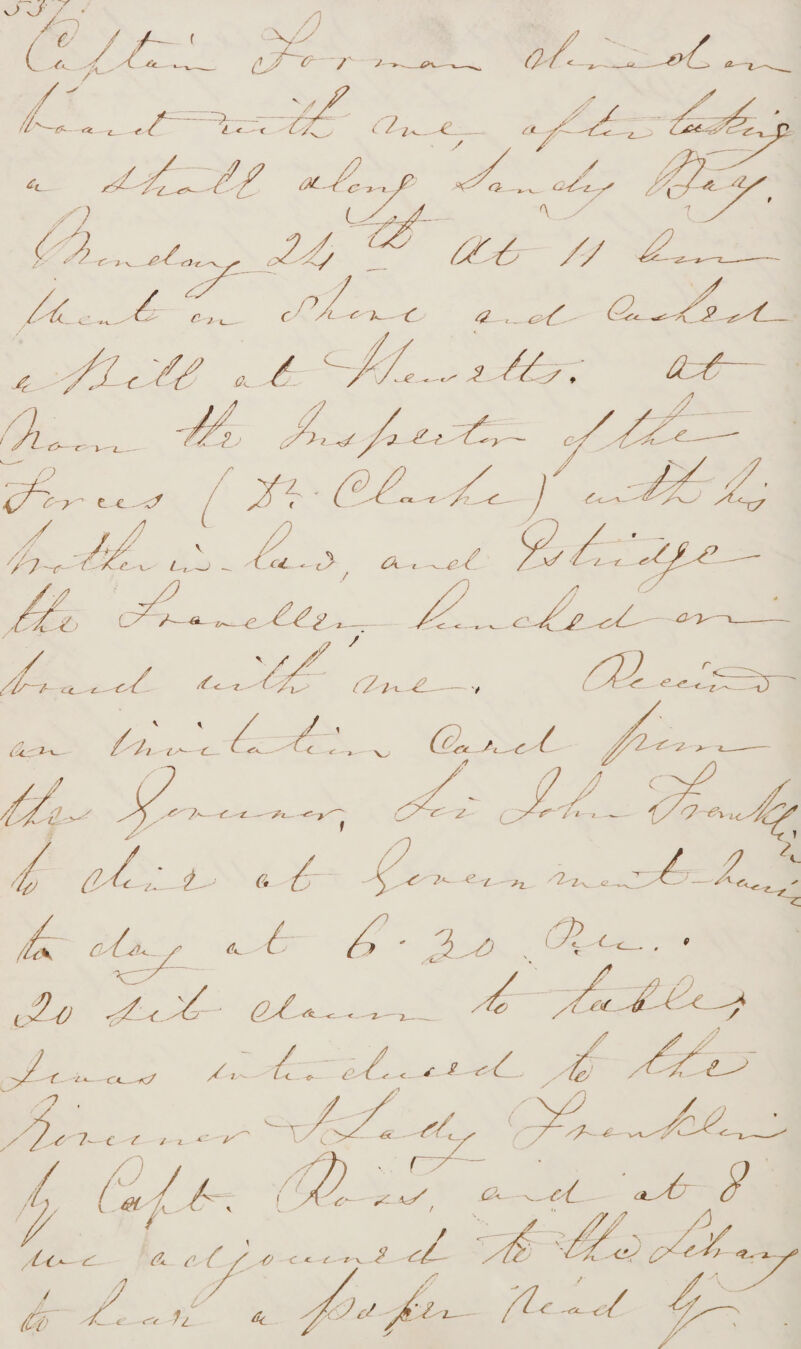 537.
Captain Forman dined on
board with me, after taking
a stroll along Sandy Bay.
Monday 24th At 11 am
Went on Shore and Cashed
a Bill at Hewetts. At
Noon the Inspector of the
Forces (Dr. Clarke) with his
brother in-law, and Estridge
the Traveller, lunched on
board with me. Received
an Invitation Card from
the Governor, Sir John Franklin
to dine at Government-house
to day at 6.30 P.M.
20 sit down to table,
I was introduced to the
Governor & Lady Franklin
by Capt. Ross, and at 8
we adjourned to the Library
to hear a paper read by